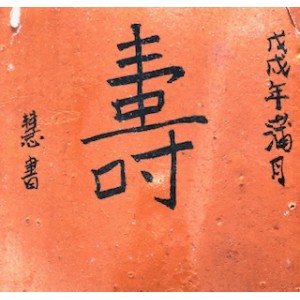 戊戌年滿月
壽
慧書